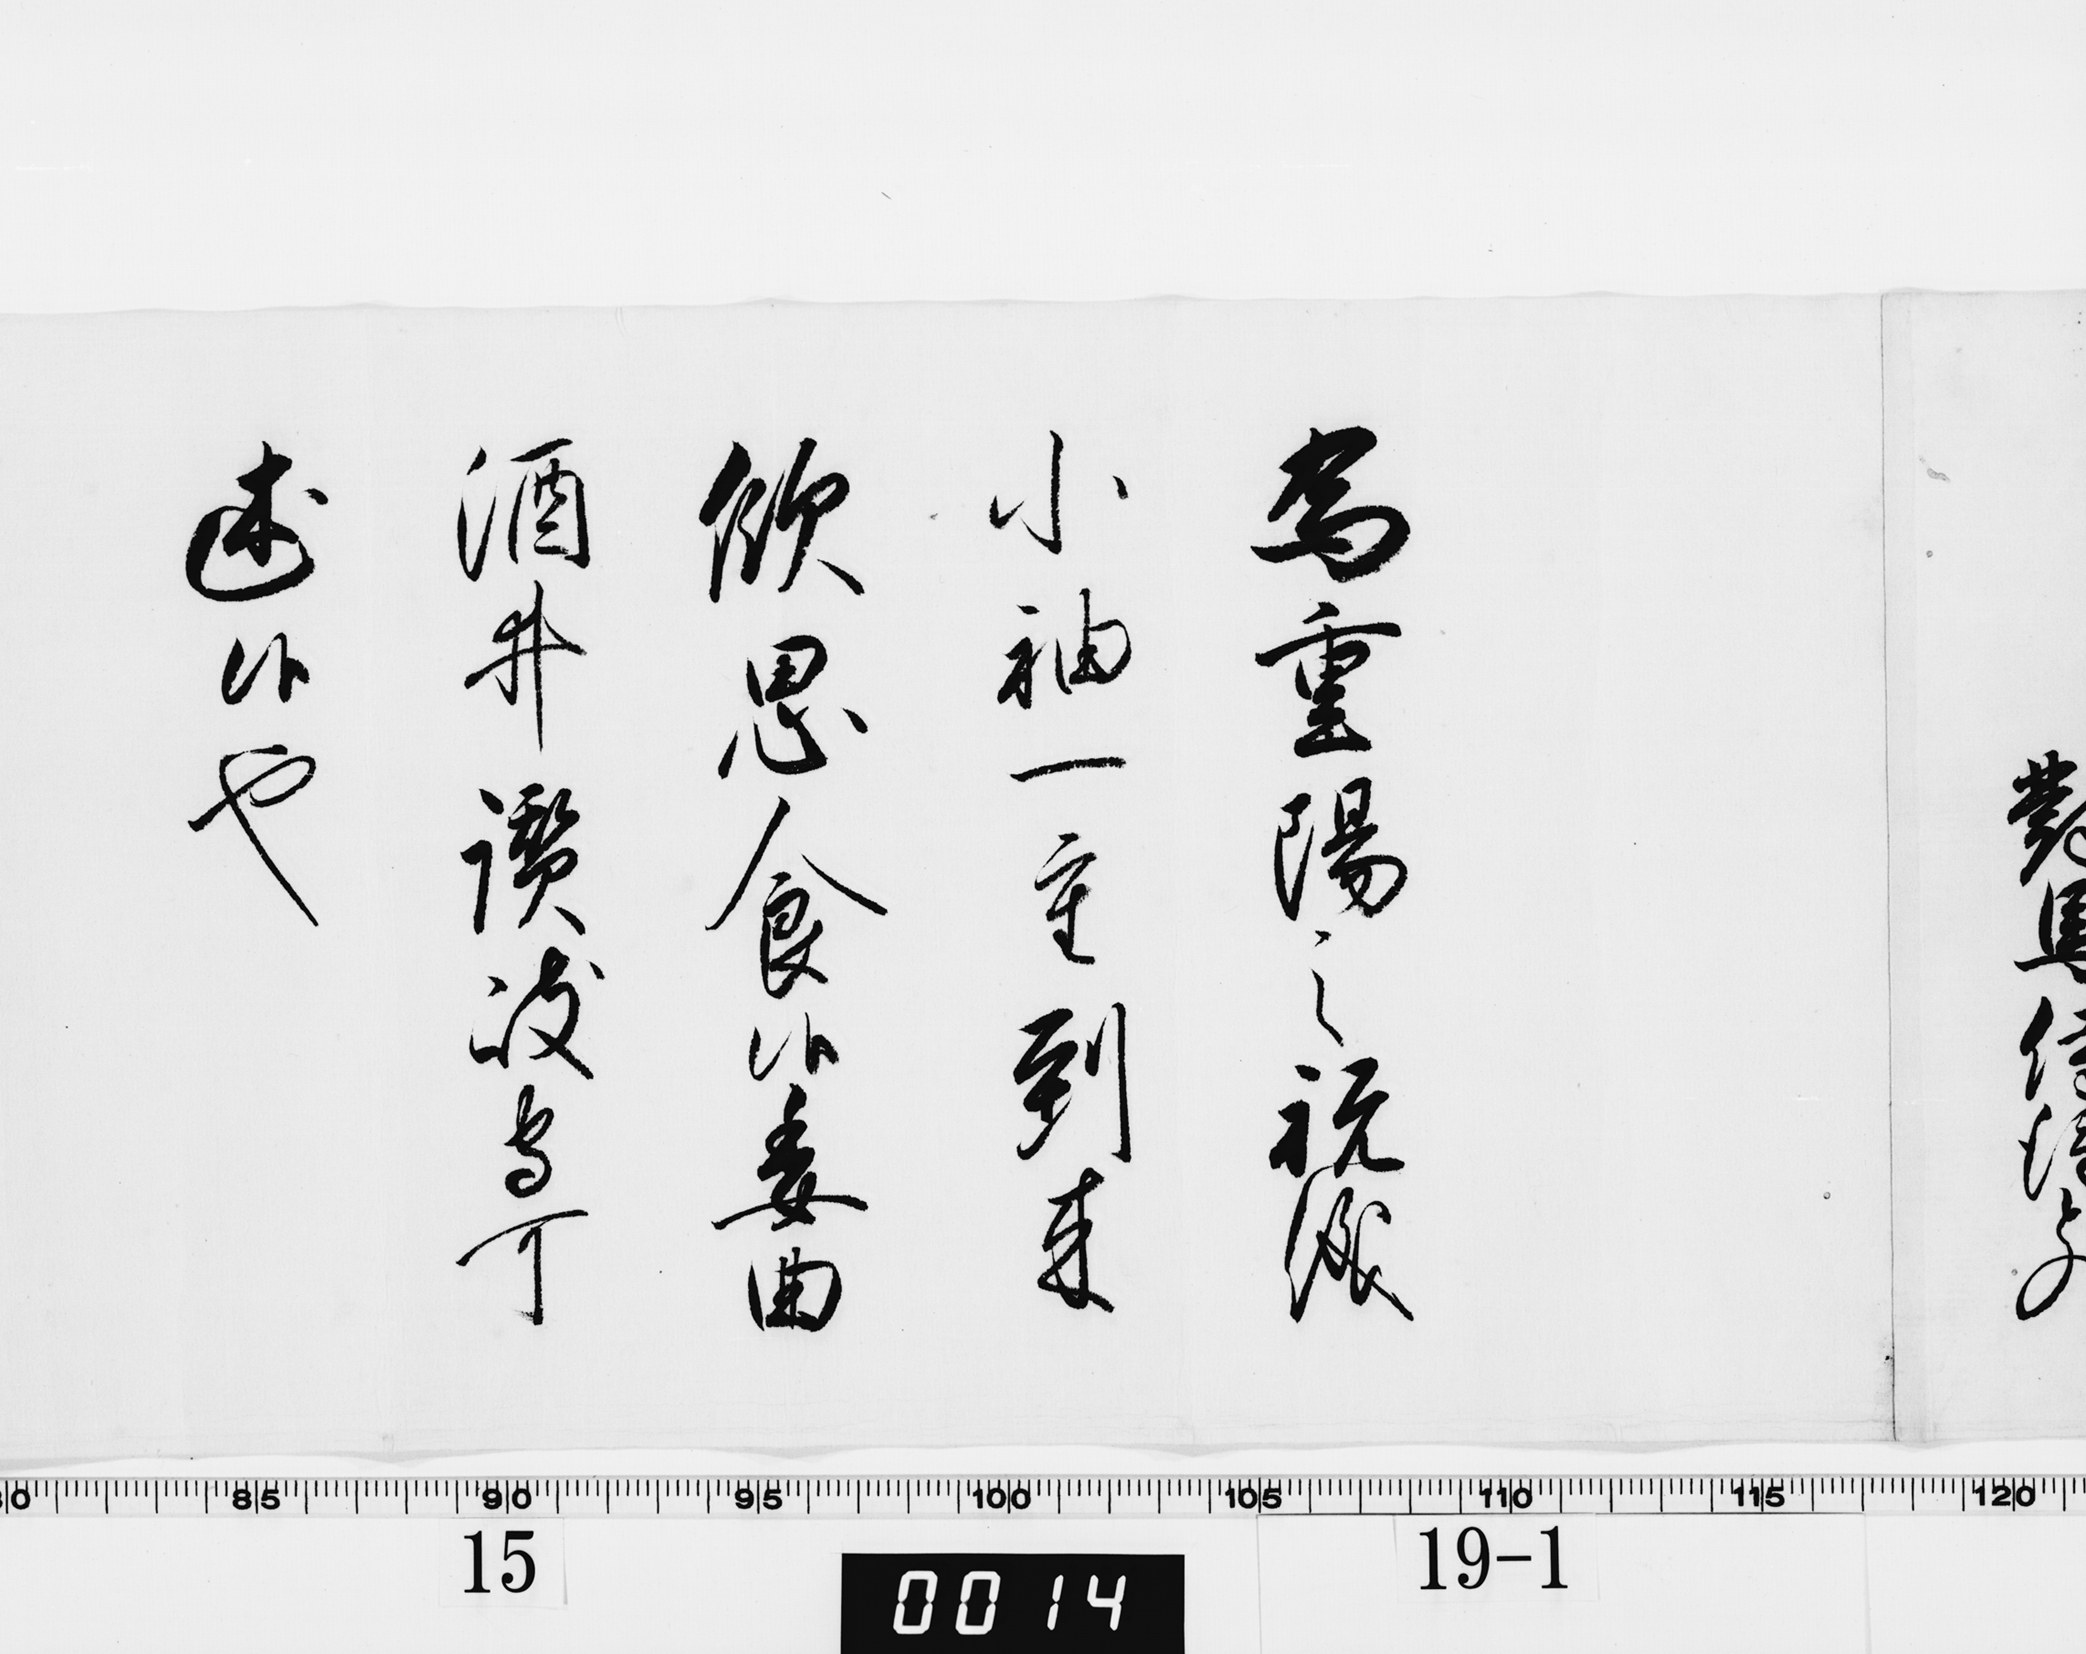 對馬侍従とのへ
為重陽之祝儀
小袖一重到来
欣思食候委曲
酒井讃岐守可
述候也
80 85 90 95 100 105 110 115 120
15
0014
19-1